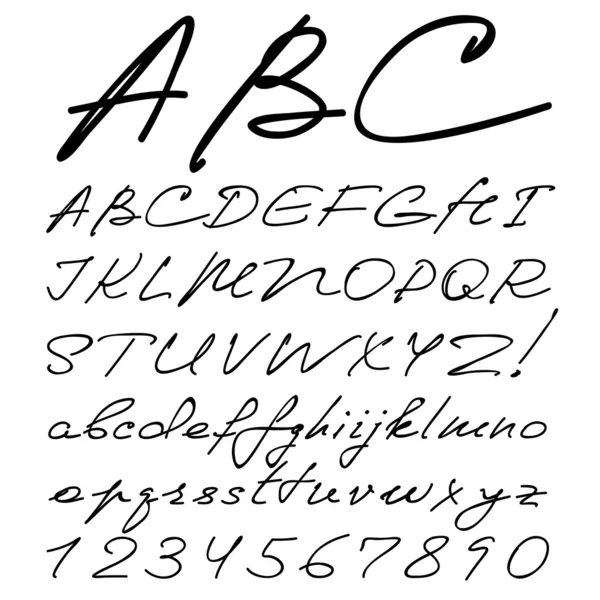 ABC
ABCDEFGHI
JKLMNOPQR
STUVWXYZ!
abcdeffghijklmno
epqrssttuvwxyz
1234567890